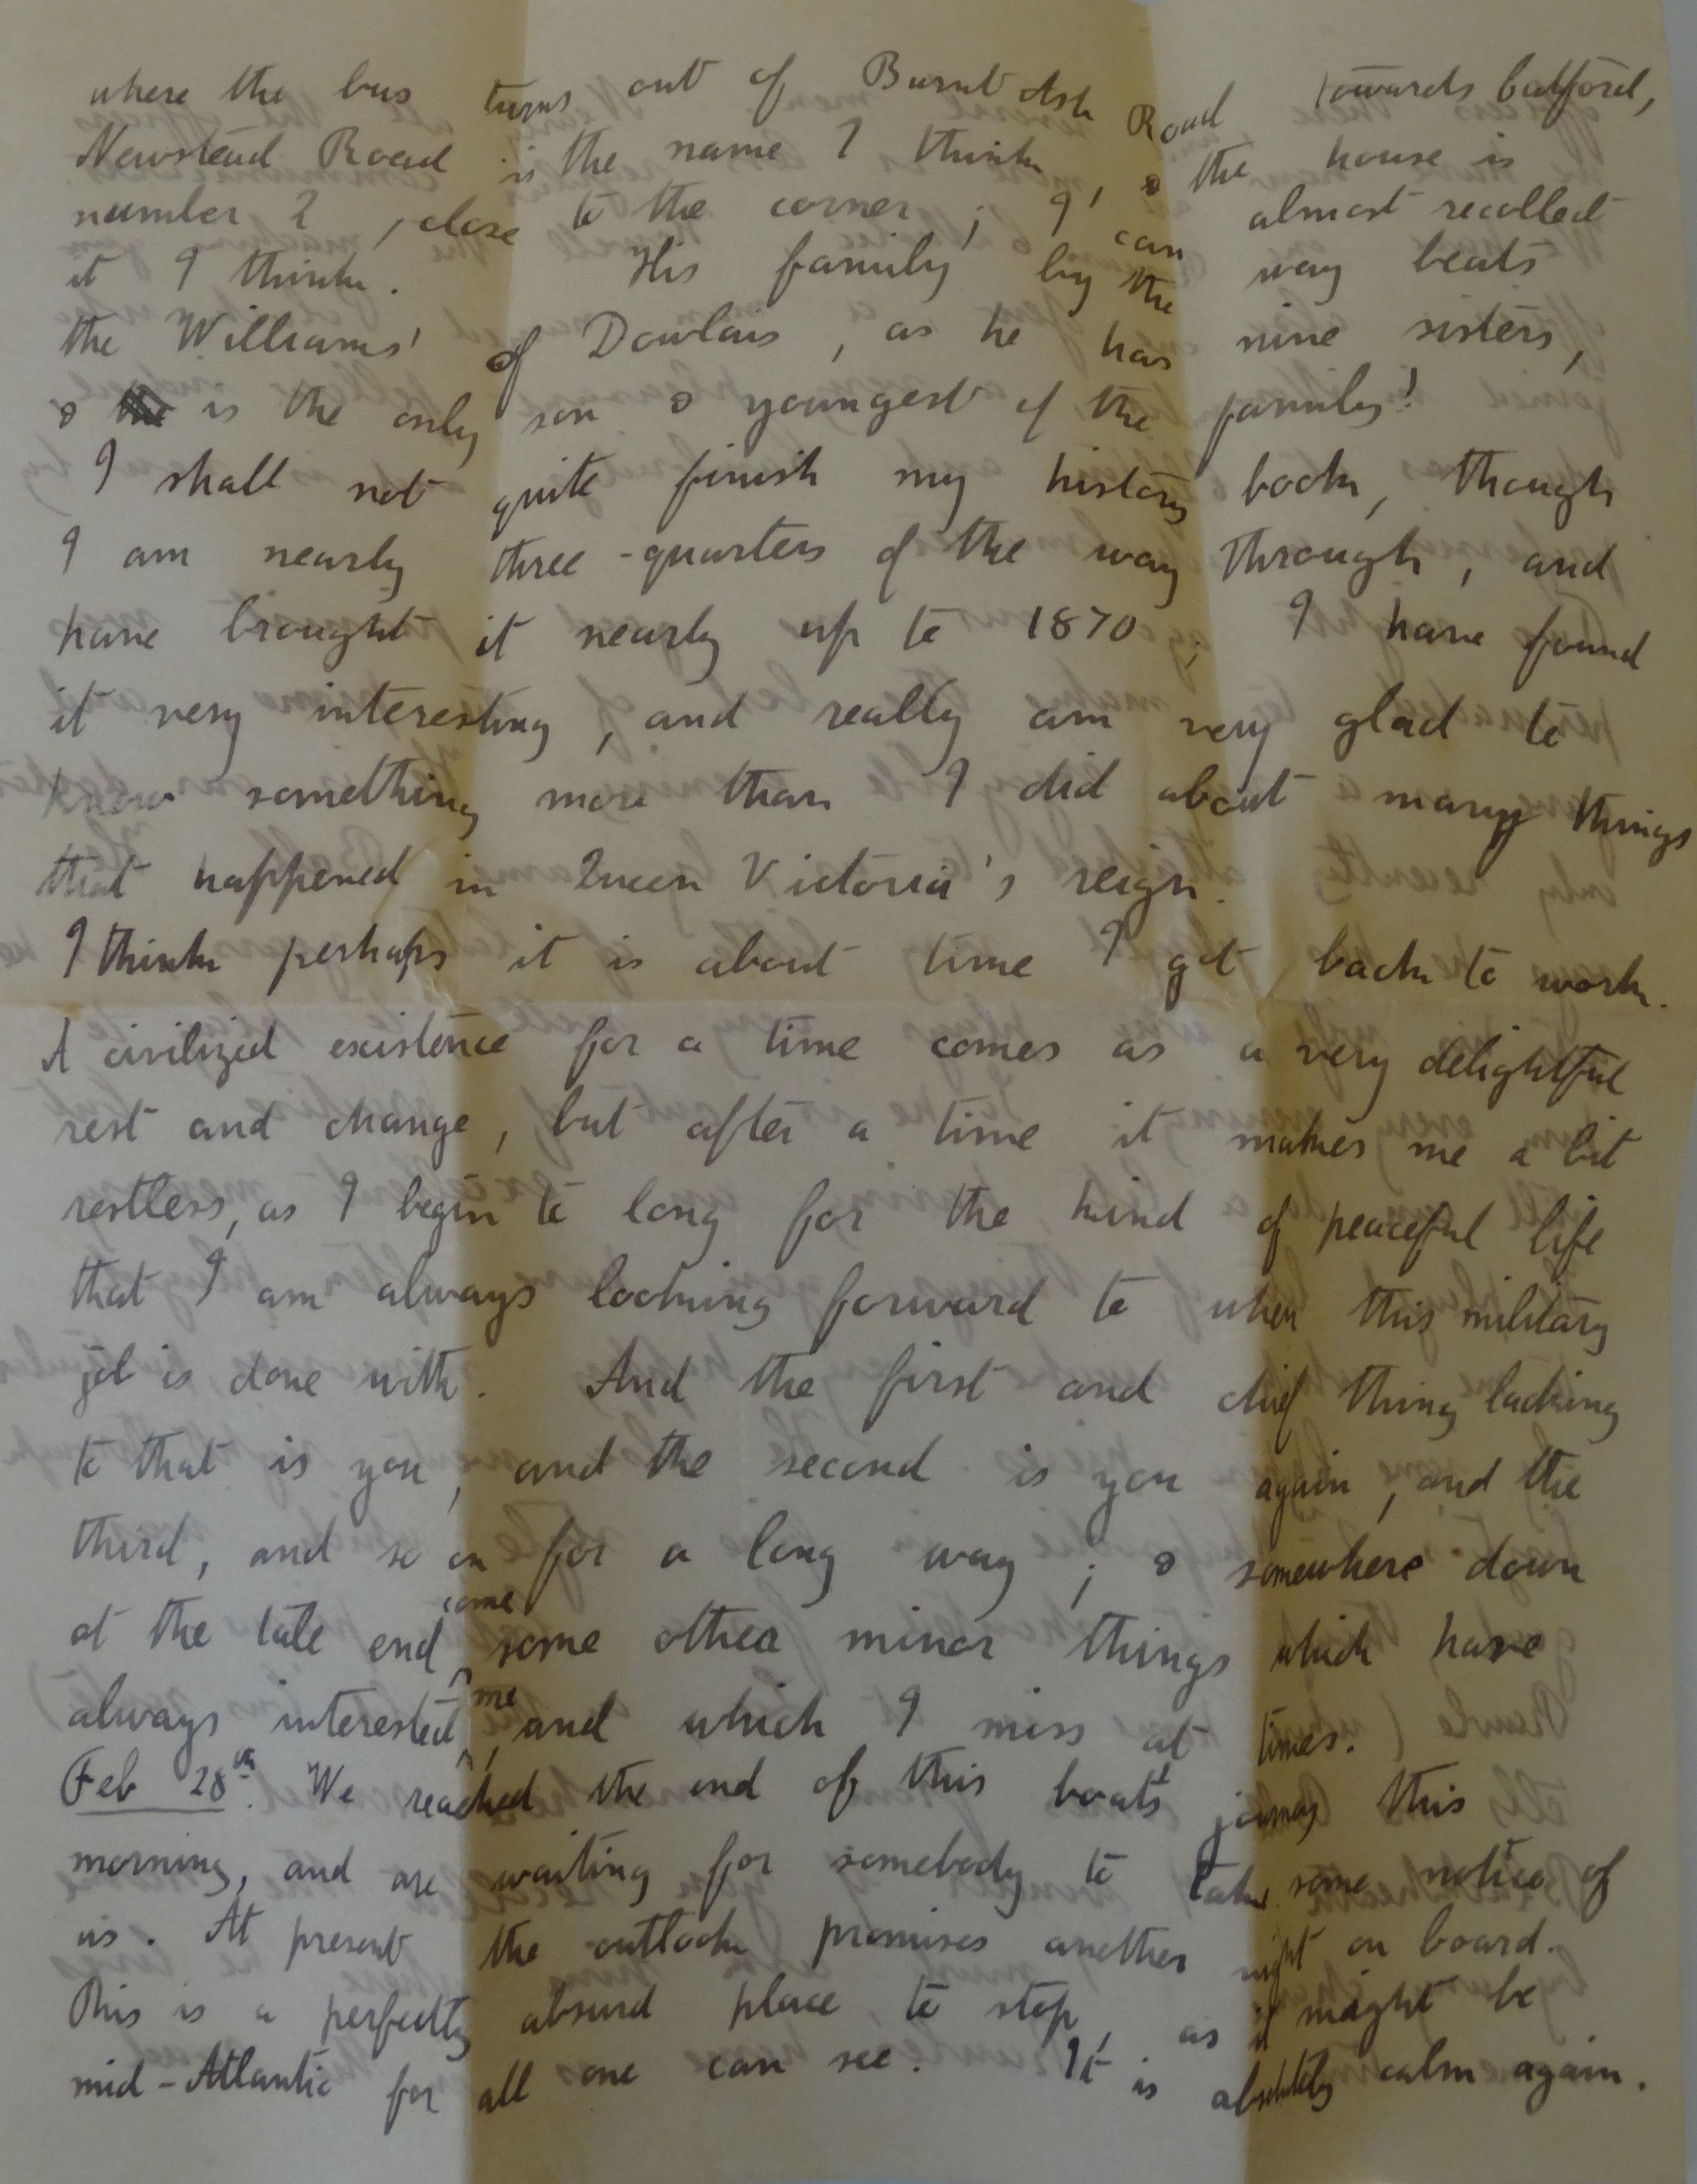 where the bus turns out of Burnt Ash Road towards Catford,
Newstead Road is the name I think, & the house is
number 2, close to the corner; I can almost recollect
it I think. His family by the way beats
the Williams' of Dowlais, as he has nine sisters,
& is the only son & youngest of the family!
I shall not quite finish my history book, though
I am nearly three-quarters of the way through, and
have brought it nearly up to 1870; I have found
it very interesting, and really am very glad to
know something more than I did about many things
that happened in Queen Victoria's reign.
I think perhaps it is about time I got back to work.
A civilized existence for a time comes as a very delightful
rest and change, but after a time it makes me a bit
restless, as I begin to long for the kind of peaceful life
that I am always looking forward to when this military
job is done with. And the first and chief thing lacking
to that is you, and the second is you again, and the
third, and so on for a long way; & somewhere down
at the tale end come some other minor things which have
always interested me, and which I miss at times.
Feb 28th. We reached the end of this boat's journey this
morning, and are waiting for somebody to take some notice of
us. At present the outlook promises another night on board.
This is a perfectly absurd place to stop, as it might be
mid-Atlantic for all one can see. It is absolutely calm again.